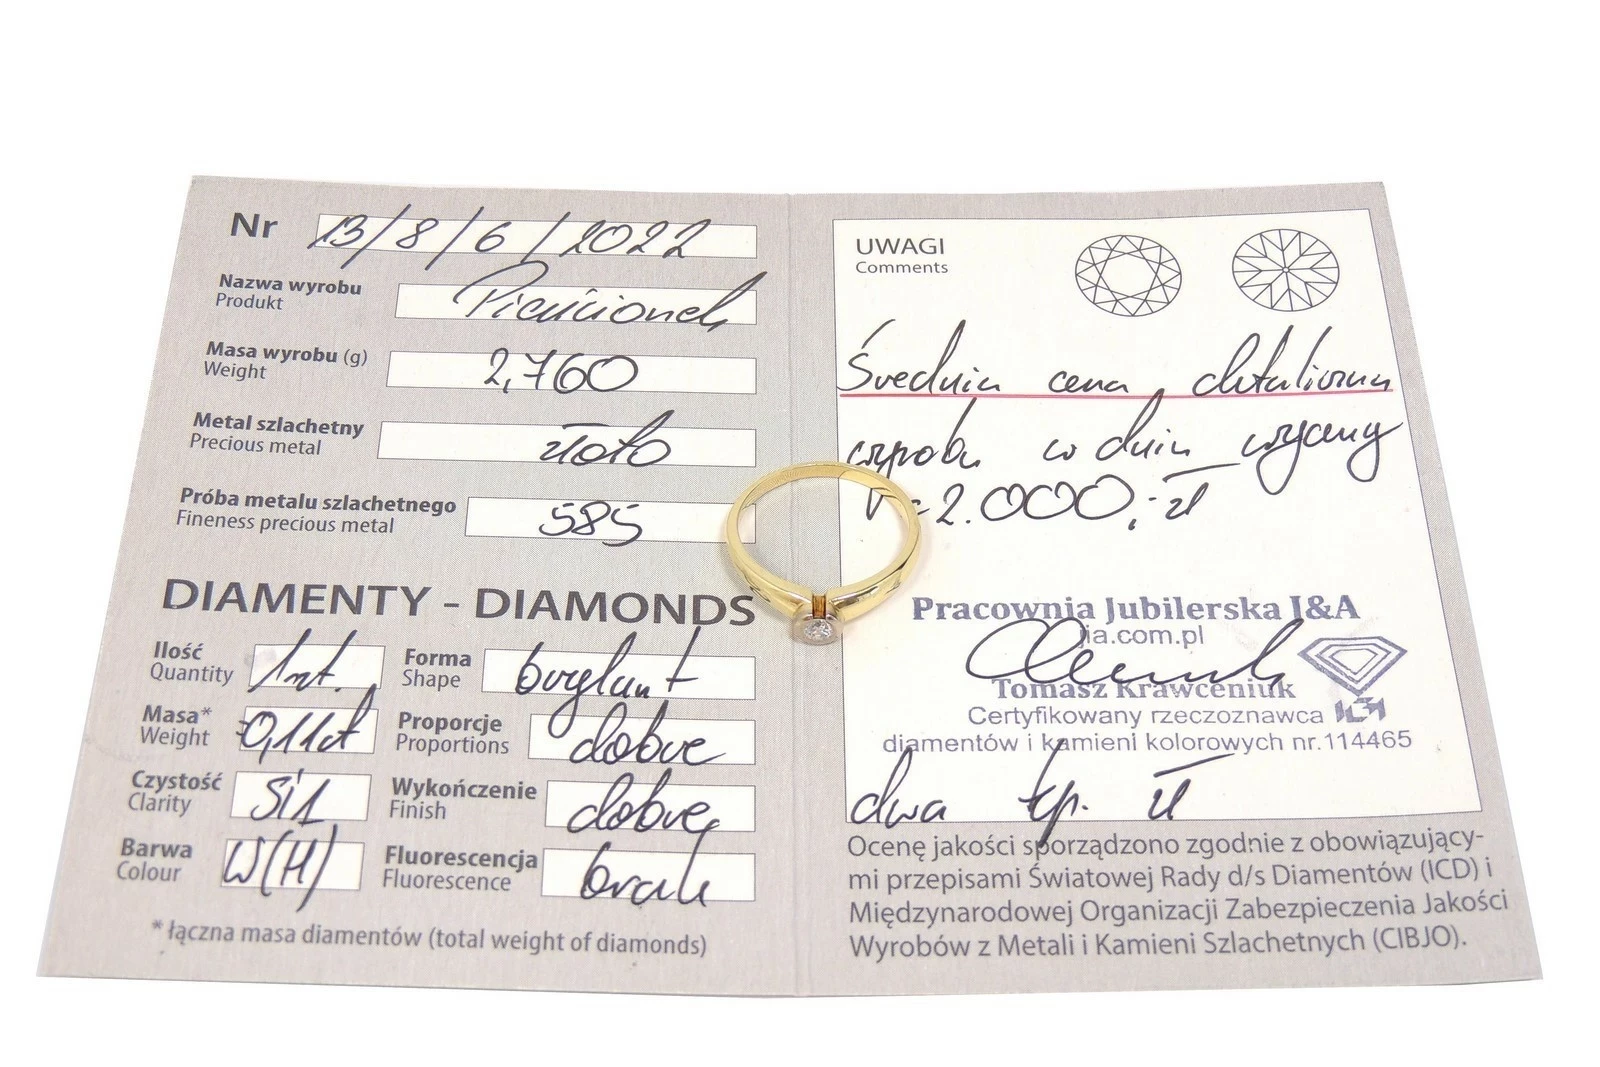 Nr 13/8/6/2022
Nazwa wyrobu Pierścionek
Produkt
Masa wyrobu (g) 2,760
Weight
Metal szlachetny złoto
Precious metal
Próba metalu szlachetnego 585
Fineness precious metal
DIAMENTY - DIAMONDS
Ilość 1szt.
Quantity
Forma brylant
Shape
Masa* ~0,11ct
Weight
Proporcje dobre
Proportions
Czystość Si1
Clarity
Wykończenie dobre
Finish
Barwa W(H)
Colour
Fluorescencja brak
Fluorescence
* łączna masa diamentów (total weight of diamonds)
UWAGI
Comments
Średnia cena detaliczna
wyrobu w dniu wyceny
= 2.000,- zł
Pracownia Jubilerska I&A
jia.com.pl
Tomasz Krawceniuk
Certyfikowany rzeczoznawca
diamentów i kamieni kolorowych nr.114465
dwa tys. zł
Ocenę jakości sporządzono zgodnie z obowiązujący-
mi przepisami Światowej Rady d/s Diamentów (ICD) i
Międzynarodowej Organizacji Zabezpieczenia Jakości
Wyrobów z Metali i Kamieni Szlachetnych (CIBJO).